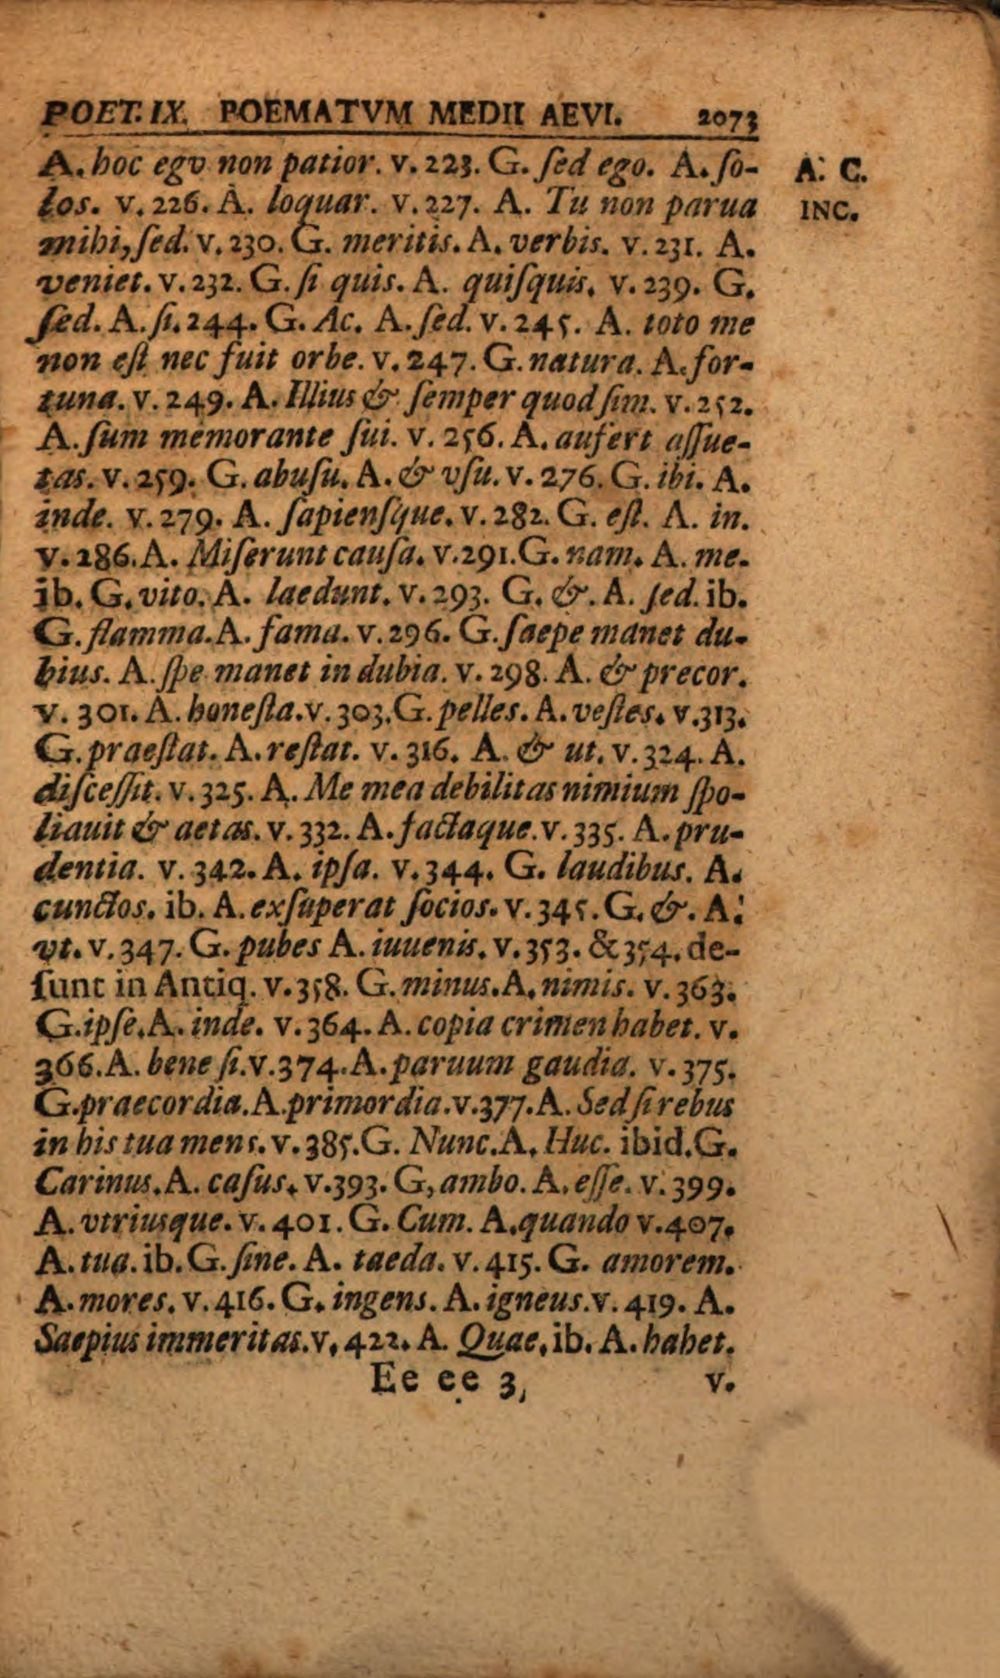 POET. IX. POEMATVM MEDII AEVI. 2073
A. C.
INC.
A. hoc ego non patior. v. 223. G. ſed ego. A. ſo-
los. v. 226. A. loquar. v. 227. A. Tu non parua
mihi, ſed. v. 230. G. meritis. A. verbis. v. 231. A.
veniet. v. 232. G. ſi quis. A. quiſquis. v. 239. G.
ſed. A. ſi. 244. G. Ac. A. ſed. v. 245. A. toto me
non eſt nec fuit orbe. v. 247. G. natura. A. for-
tuna. v. 249. A. Illius & ſemper quod ſim. v. 252.
A. ſum memorante ſui. v. 256. A. aufert aſſue-
tas. v. 259. G. abuſu. A. & vſu. v. 276. G. ibi. A.
inde. v. 279. A. ſapienſque. v. 282. G. eſt. A. in.
v. 286. A. Miſerunt cauſa. v. 291. G. nam. A. me.
ib. G. vito. A. laedunt. v. 293. G. &. A. ſed. ib.
G. flamma. A. fama. v. 296. G. ſaepe manet du-
bius. A. ſpe manet in dubia. v. 298. A. & precor.
v. 301. A. honeſta. v. 303. G. pelles. A. veſtes. v. 313.
G. praeſtat. A. reſtat. v. 316. A. & ut. v. 324. A.
diſceſſit. v. 325. A. Me mea debilitas nimium ſpo-
liauit & aetas. v. 332. A. factaque. v. 335. A. pru-
dentia. v. 342. A. ipſa. v. 344. G. laudibus. A.
cunctos. ib. A. exſuperat ſocios. v. 345. G. &. A.
vt. v. 347. G. pubes A. iuuenis. v. 353. & 354. de-
ſunt in Antiq. v. 358. G. minus. A. nimis. v. 363.
G. ipſe. A. inde. v. 364. A. copia crimen habet. v.
366. A. bene ſi. v. 374. A. paruum gaudia. v. 375.
G. praecordia. A. primordia. v. 377. A. Sed ſi rebus
in his tua mens. v. 385. G. Nunc. A. Huc. ibid. G.
Carinus. A. caſus. v. 393. G, ambo. A. eſſe. v. 399.
A. vtriusque. v. 401. G. Cum. A. quando v. 407.
A. tua. ib. G. ſine. A. taeda. v. 415. G. amorem.
A. mores. v. 416. G. ingens. A. igneus. v. 419. A.
Saepius immeritas. v. 422. A. Quae. ib. A. habet.
Ee ee 3, v.